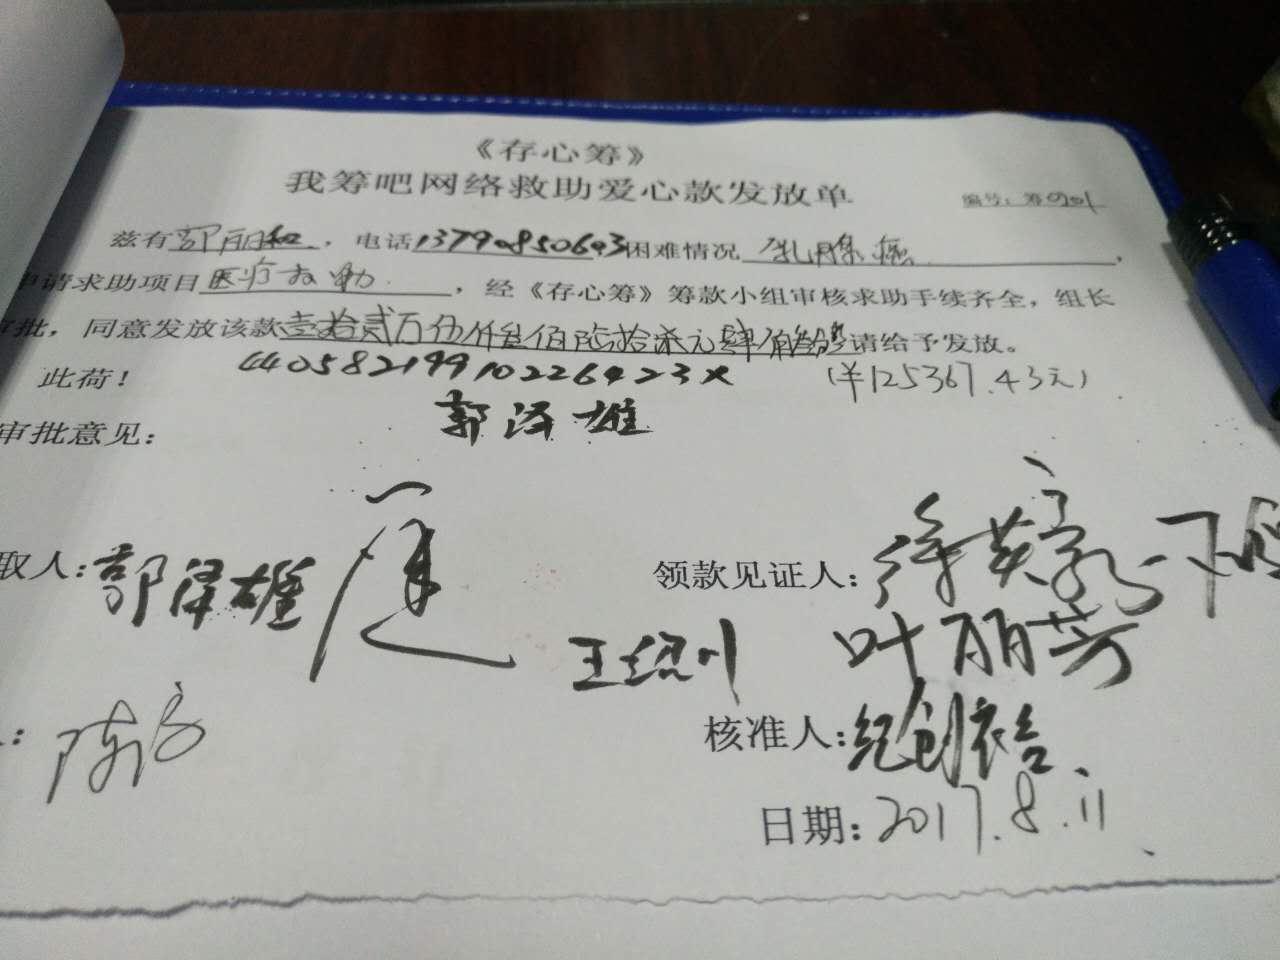 《存心筹》
我筹吧网络救助爱心款发放单
编号：筹
兹有郭丽和，电话13790850603困难情况 乳腺癌，
申请求助项目医疗救助，经《存心筹》筹款小组审核求助手续齐全，组长
审批，同意发放该款壹拾贰万伍仟叁佰陆拾柒元肆角叁分请给予发放。
此荷！ 44058219910226423X （¥125367.43元）
郭泽雄
审批意见：
取人：郭泽雄 领款见证人：
王绍川 叶丽芳
核准人：纪创裕
日期：2017.8.11